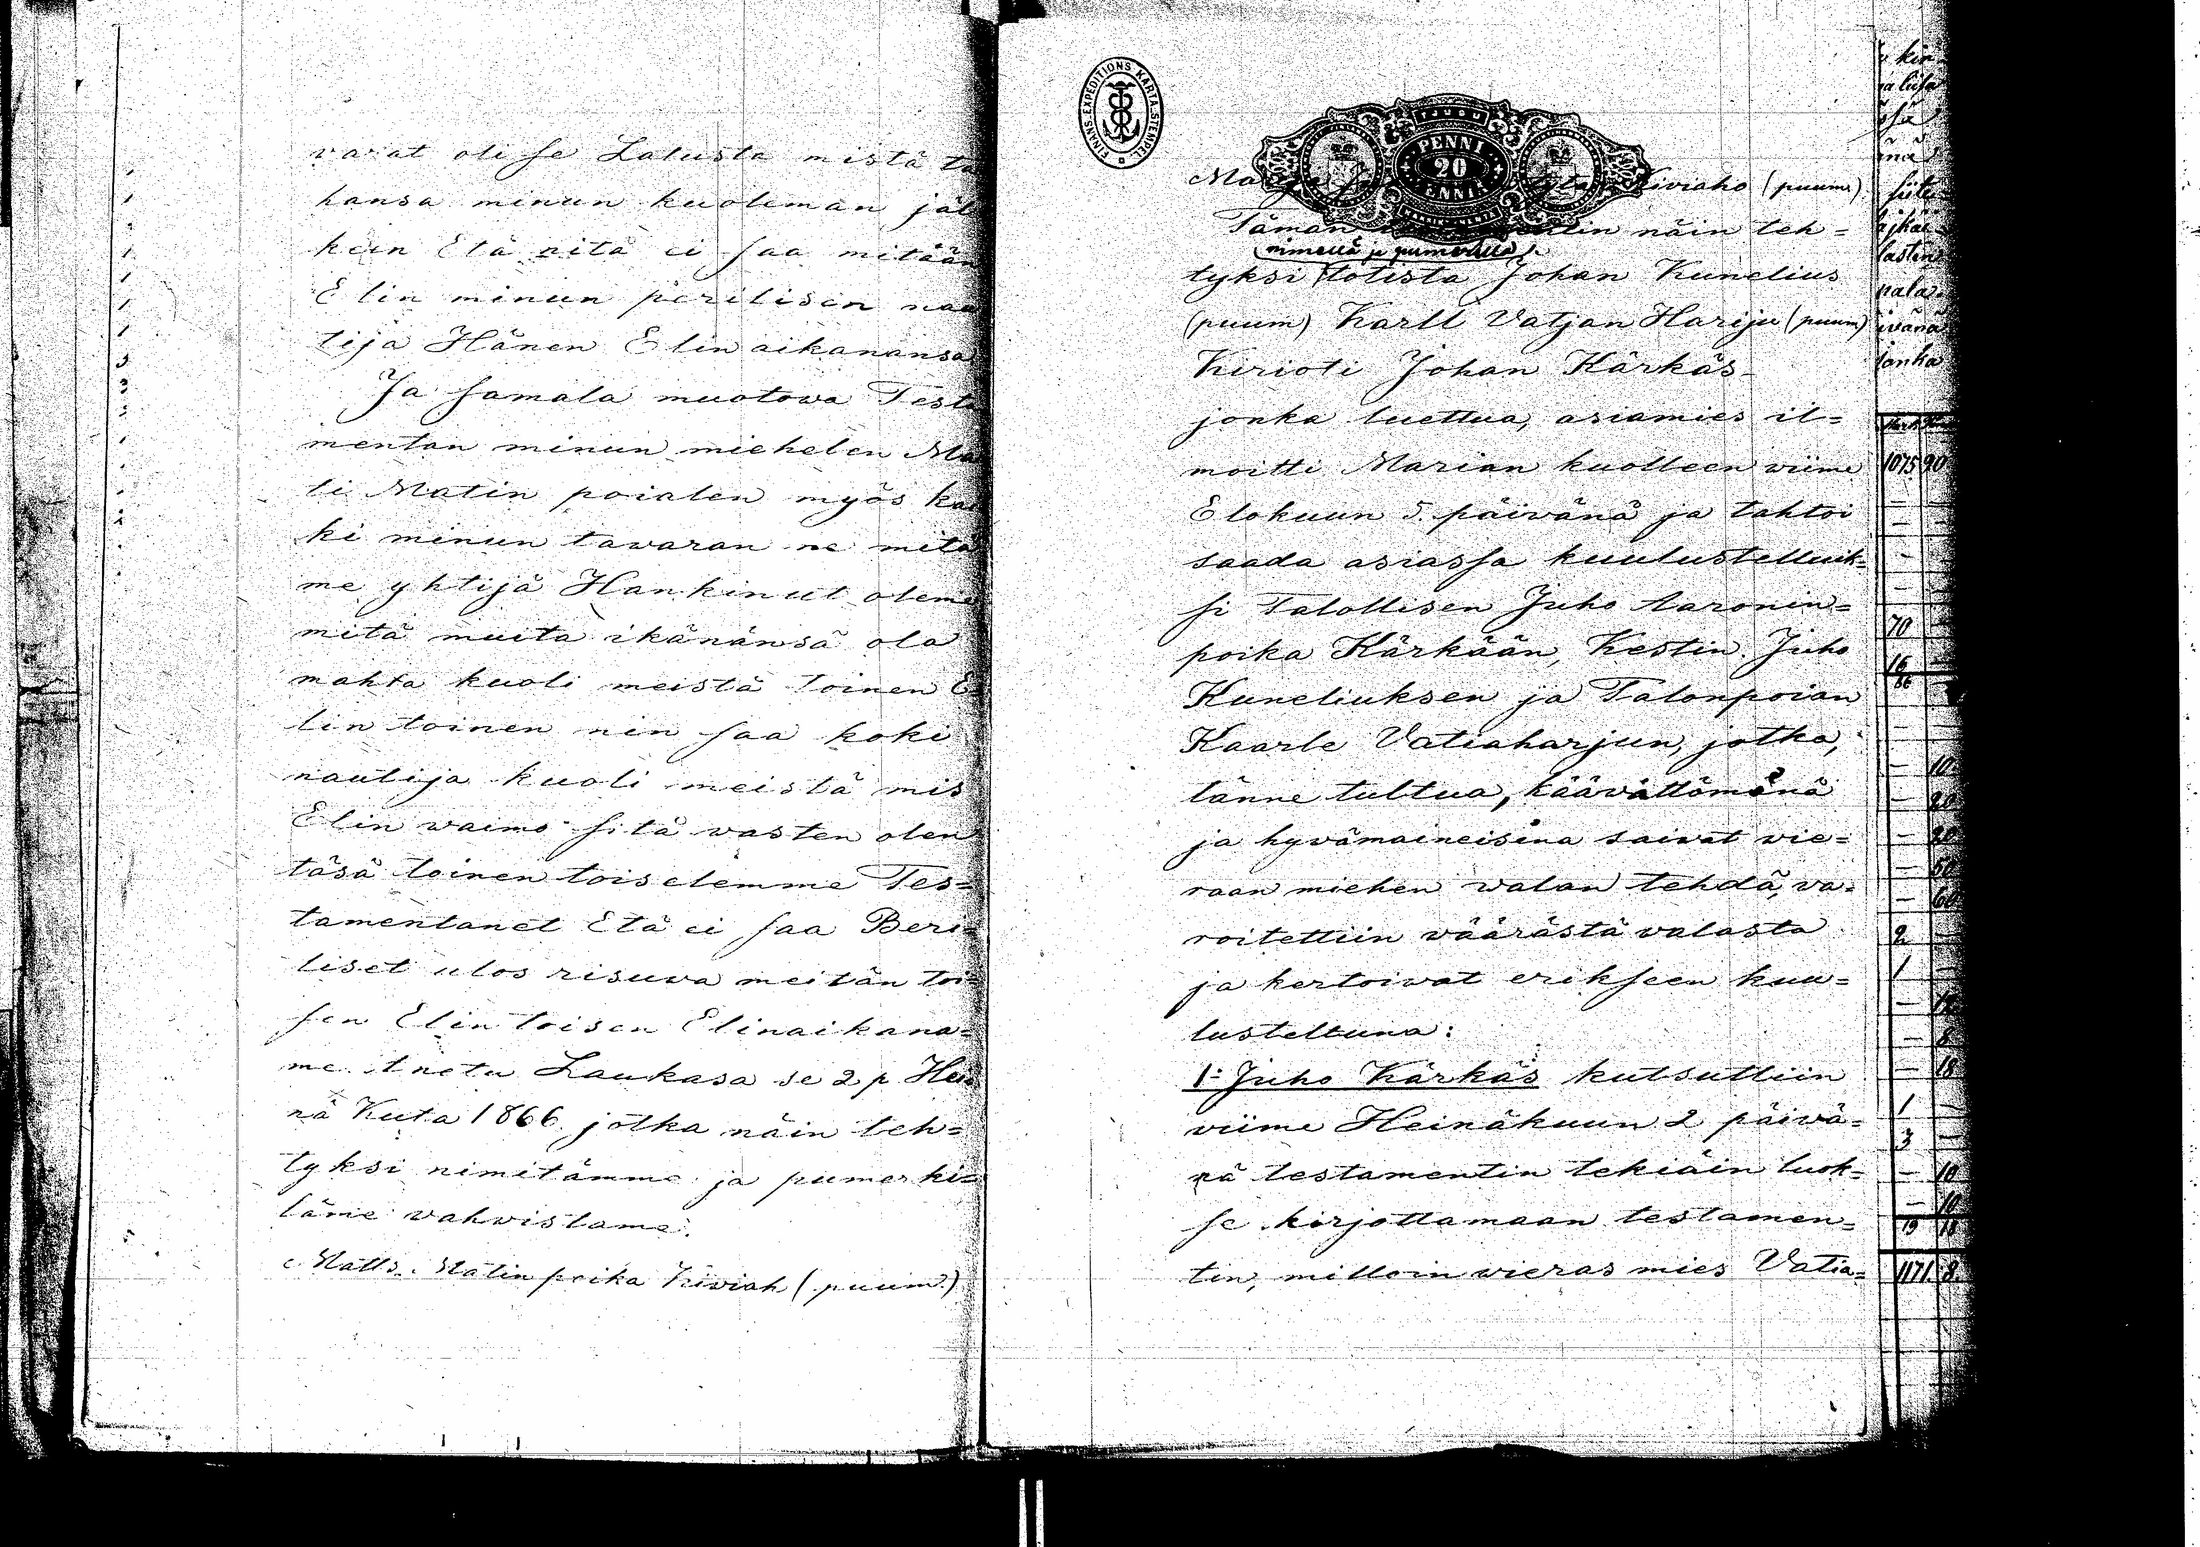 varat oli se Lalusta mistä ta
hansa minun kuoleman jäl
kein Etä nitä ei saa mitään
Elin minun perilisen nau
tija Hänen Elin aikanansa
Ja samala muotova Testa
mentan minun miehelen Ma
ti Matin poialen myös kai
ki minun tavaran ne mitä
me yhtijä Hankinut oleme
mitä muita ikänänsä ola
mahta kuoli meistä toinen E=
lin toinen nin saa koki
nautija kuoli meistä mis
Elin vaimo sitä vasten olen
täsä toinen toiselemme Tes=
tamentanet Etä ei saa Beri=
liset ulos risuva meitän toi=
sen Elin toisen Elinaikana=
me. Laukasa se 2 p Hei
nä Kuta 1866. jotka näin teh=
tyksi nimitämme ja pumerki=
läme vahvistame.
Matts. Matin poika Kiviah (puum.)
FINANS-EXPEDITIONS KARTA-STEMPEL
PENNI
20
PENNIÄ
Kiviaho (puum.)
Tämän näin teh=
nimellä ja pumerkillä
tyksi totista Johan Kunelius
(puum) Karll Vatjan Hariju (puum)
Kirioti Johan Kärkäs
jonka luettua, asiamies il=
moitti Marian kuolleen viime
Elokuun 5. päivänä ja tahtoi
saada asiassa kuulustelluik=
si Talollisen Juho Aaronin=
poika Kärkään, Kestin Juho
Kuneliuksen ja Talonpoian
Kaarle Vatiaharjun, jotka,
tänne tultua, jäävittöminä
ja hyvämaineisina saivat vie=
raan miehen valan tehdä, va=
roitettiin väärästä valasta
ja kertoivat erikseen kuu=
lusteltuna:
1: Juho Kärkäs kutsuttiin
viime Heinäkuun 2 päivä=
nä testamentin tekiäin luok=
se kirjottamaan testamen=
tin, milloin vieras mies Vatia=
kir
lastens
jonka
1075 90
70
16
86
10
20
20
50
60
2
1
12
8
18
1
3
10
10
19 18
1171 8